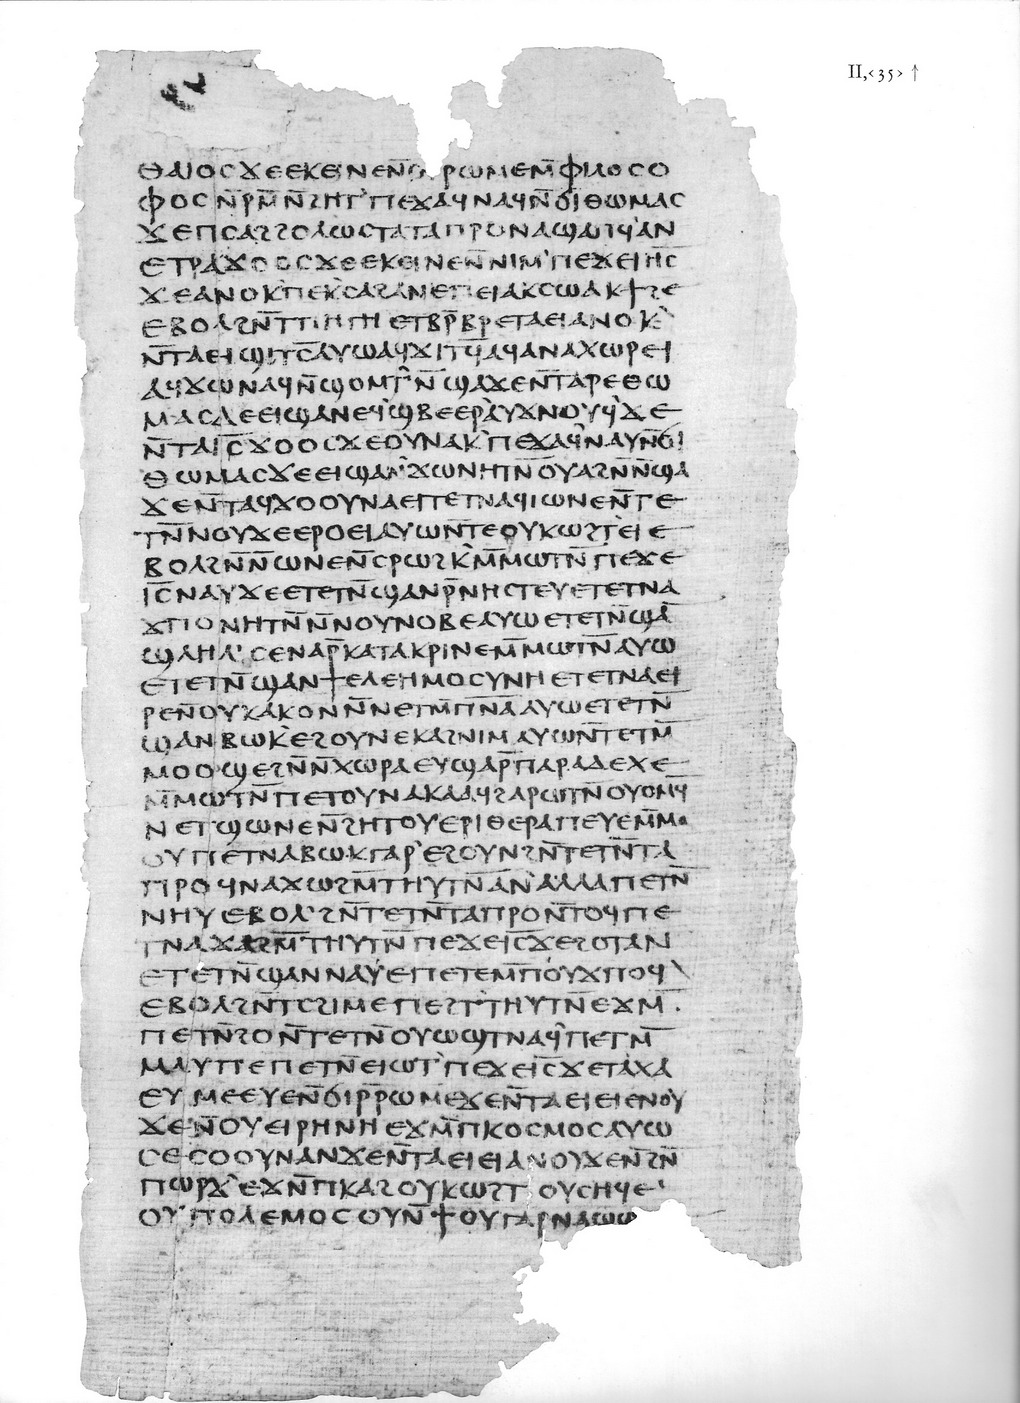 II,‹35› ↑
ⲑⲁⲓⲟⲥ ϫⲉ ⲉⲕⲉⲓⲛⲉ ⲛ̄ⲟ ⲣⲱⲙⲉ ⲙ̄ⲫⲓⲗⲟⲥⲟ
ⲫⲟⲥ ⲛ̄ⲣⲙ̄ⲛ̄ϩⲏⲧ` ⲡⲉϫⲁϥ ⲛⲁϥ ⲛ̄ϭⲓ ⲑⲱⲙⲁⲥ
ϫⲉ ⲡⲥⲁϩ ϩⲟⲗⲱⲥ ⲧⲁⲧⲁⲡⲣⲟ ⲛⲁϣⲁⲡϥ` ⲁⲛ
ⲉⲧⲣⲁϫⲟⲟⲥ ϫⲉ ⲉⲕⲉⲓⲛⲉ ⲛ̄ⲛⲓⲙ` ⲡⲉϫⲉ ⲓⲏⲥ
ϫⲉ ⲁⲛⲟⲕ` ⲡⲉⲕ`ⲥⲁϩ ⲁⲛ ⲉⲡⲉⲓ ⲁⲕⲥⲱ ⲁⲕϯϩⲉ
ⲉⲃⲟⲗ ϩⲛ̄ ⲧⲡⲏⲅⲏ ⲉⲧⲃⲣ̄ⲃⲣⲉ ⲧⲁⲉⲓ ⲁⲛⲟⲕ`
ⲛ̄ⲧⲁⲉⲓϣⲓⲧⲥ̄ ⲁⲩⲱ ⲁϥϫⲓⲧϥ̄ ⲁϥⲁⲛⲁⲭⲱⲣⲉⲓ
ⲁϥϫⲱ ⲛⲁϥ ⲛ̄ϣⲟⲙⲧ` ⲛ̄ϣⲁϫⲉ ⲛ̄ⲧⲁⲣⲉ ⲑⲱ
ⲙⲁⲥ ⲇⲉ ⲉⲓ ϣⲁ ⲛⲉϥ`ϣⲃⲉⲉⲣ` ⲁⲩϫⲛⲟⲩϥ` ϫⲉ
ⲛ̄ⲧⲁ ⲓⲥ̄ ϫⲟⲟⲥ ϫⲉ ⲟⲩ ⲛⲁⲕ` ⲡⲉϫⲁϥ` ⲛⲁⲩ ⲛ̄ϭⲓ
ⲑⲱⲙⲁⲥ ϫⲉ ⲉⲓϣⲁⲛ`ϫⲱ ⲛⲏⲧⲛ̄ ⲟⲩⲁ ϩⲛ̄ ⲛ̄ϣⲁ
ϫⲉ ⲛ̄ⲧⲁϥϫⲟⲟⲩ ⲛⲁⲉⲓ ⲧⲉⲧⲛⲁϥⲓ ⲱⲛⲉ ⲛ̄ⲧⲉ
ⲧⲛ̄ⲛⲟⲩϫⲉ ⲉⲣⲟⲉⲓ ⲁⲩⲱ ⲛ̄ⲧⲉ ⲟⲩⲕⲱϩⲧ` ⲉⲓ ⲉ
ⲃⲟⲗ ϩⲛ̄ ⲛ̄ⲱⲛⲉ ⲛ̄ⲥⲣⲱϩⲕ` ⲙ̄ⲙⲱⲧⲛ̄ ⲡⲉϫⲉ
ⲓⲥ̄ ⲛⲁⲩ ϫⲉ ⲉⲧⲉⲧⲛ̄ϣⲁⲛⲣ̄ⲛⲏⲥⲧⲉⲩⲉ ⲧⲉⲧⲛⲁ
ϫⲡⲟ ⲛⲏⲧⲛ̄ ⲛ̄ⲛⲟⲩⲛⲟⲃⲉ ⲁⲩⲱ ⲉⲧⲉⲧⲛ̄ϣⲁ
ϣⲗⲏⲗ` ⲥⲉⲛⲁⲣ̄ⲕⲁⲧⲁⲕⲣⲓⲛⲉ ⲙ̄ⲙⲱⲧⲛ̄ ⲁⲩⲱ
ⲉⲧⲉⲧⲛ̄ϣⲁⲛϯ ⲉⲗⲉⲏⲙⲟⲥⲩⲛⲏ ⲉⲧⲉⲧⲛⲁⲉⲓ
ⲣⲉ ⲛ̄ⲟⲩⲕⲁⲕⲟⲛ ⲛ̄ⲛⲉⲧⲙ̄ⲡⲛ̄ⲁ̄ ⲁⲩⲱ ⲉⲧⲉⲧⲛ̄
ϣⲁⲛⲃⲱⲕ` ⲉϩⲟⲩⲛ ⲉⲕⲁϩ ⲛⲓⲙ ⲁⲩⲱ ⲛ̄ⲧⲉⲧⲙ̄
ⲙⲟⲟϣⲉ ϩⲛ̄ ⲛ̄ⲭⲱⲣⲁ ⲉⲩϣⲁⲣ̄ⲡⲁⲣⲁⲇⲉⲭⲉ
ⲙ̄ⲙⲱⲧⲛ̄ ⲡⲉⲧⲟⲩⲛⲁⲕⲁⲁϥ ϩⲁⲣⲱⲧⲛ̄ ⲟⲩⲟⲙϥ
ⲛⲉⲧϣⲱⲛⲉ ⲛ̄ϩⲏⲧⲟⲩ ⲉⲣⲓⲑⲉⲣⲁⲡⲉⲩⲉ ⲙ̄ⲙⲟ
ⲟⲩ ⲡⲉⲧⲛⲁⲃⲱⲕ ⲅⲁⲣ` ⲉϩⲟⲩⲛ ϩⲛ̄ ⲧⲉⲧⲛ̄ⲧⲁ
ⲡⲣⲟ ϥⲛⲁϫⲱϩⲙ̄ ⲧⲏⲩⲧⲛ̄ ⲁⲛ` ⲁⲗⲗⲁ ⲡⲉⲧⲛ̄
ⲛⲏⲩ ⲉⲃⲟⲗ` ϩⲛ̄ ⲧⲉⲧⲛ̄ⲧⲁⲡⲣⲟ ⲛ̄ⲧⲟϥ ⲡⲉ
ⲧⲛⲁϫⲁϩⲙ̄ ⲧⲏⲩⲧⲛ̄ ⲡⲉϫⲉ ⲓⲥ̄ ϫⲉ ϩⲟⲧⲁⲛ
ⲉⲧⲉⲧⲛ̄ϣⲁⲛⲛⲁⲩ ⲉⲡⲉⲧⲉ ⲙ̄ⲡⲟⲩϫⲡⲟϥ`
ⲉⲃⲟⲗ ϩⲛ̄ ⲧⲥϩⲓⲙⲉ ⲡⲉϩⲧ` ⲧⲏⲩⲧⲛ̄ ⲉϫⲙ̄
ⲡⲉⲧⲛ̄ϩⲟ ⲛ̄ⲧⲉⲧⲛ̄ⲟⲩⲱϣⲧ ⲛⲁϥ` ⲡⲉⲧⲙ̄
ⲙⲁⲩ ⲡⲉ ⲡⲉⲧⲛ̄ⲉⲓⲱⲧ` ⲡⲉϫⲉ ⲓⲥ̄ ϫⲉ ⲧⲁⲭⲁ
ⲉⲩⲙⲉⲉⲩⲉ ⲛ̄ϭⲓ ⲣ̄ⲣⲱⲙⲉ ϫⲉ ⲛ̄ⲧⲁⲉⲓⲉⲓ ⲉⲛⲟⲩ
ϫⲉ ⲛ̄ⲟⲩⲉⲓⲣⲏⲛⲏ ⲉϫⲙ̄ ⲡⲕⲟⲥⲙⲟⲥ ⲁⲩⲱ
ⲥⲉⲥⲟⲟⲩⲛ ⲁⲛ ϫⲉ ⲛ̄ⲧⲁⲉⲓⲉⲓ ⲁⲛⲟⲩϫⲉ ⲛ̄ϩⲛ̄
ⲡⲱⲣϫ` ⲉϫⲛ̄ ⲡⲕⲁϩ ⲟⲩⲕⲱϩⲧ ⲟⲩⲥⲏϥⲉ`
ⲟⲩⲡⲟⲗⲉⲙⲟⲥ ⲟⲩⲛ̄ ϯⲟⲩ ⲅⲁⲣ ⲛⲁϣⲱ